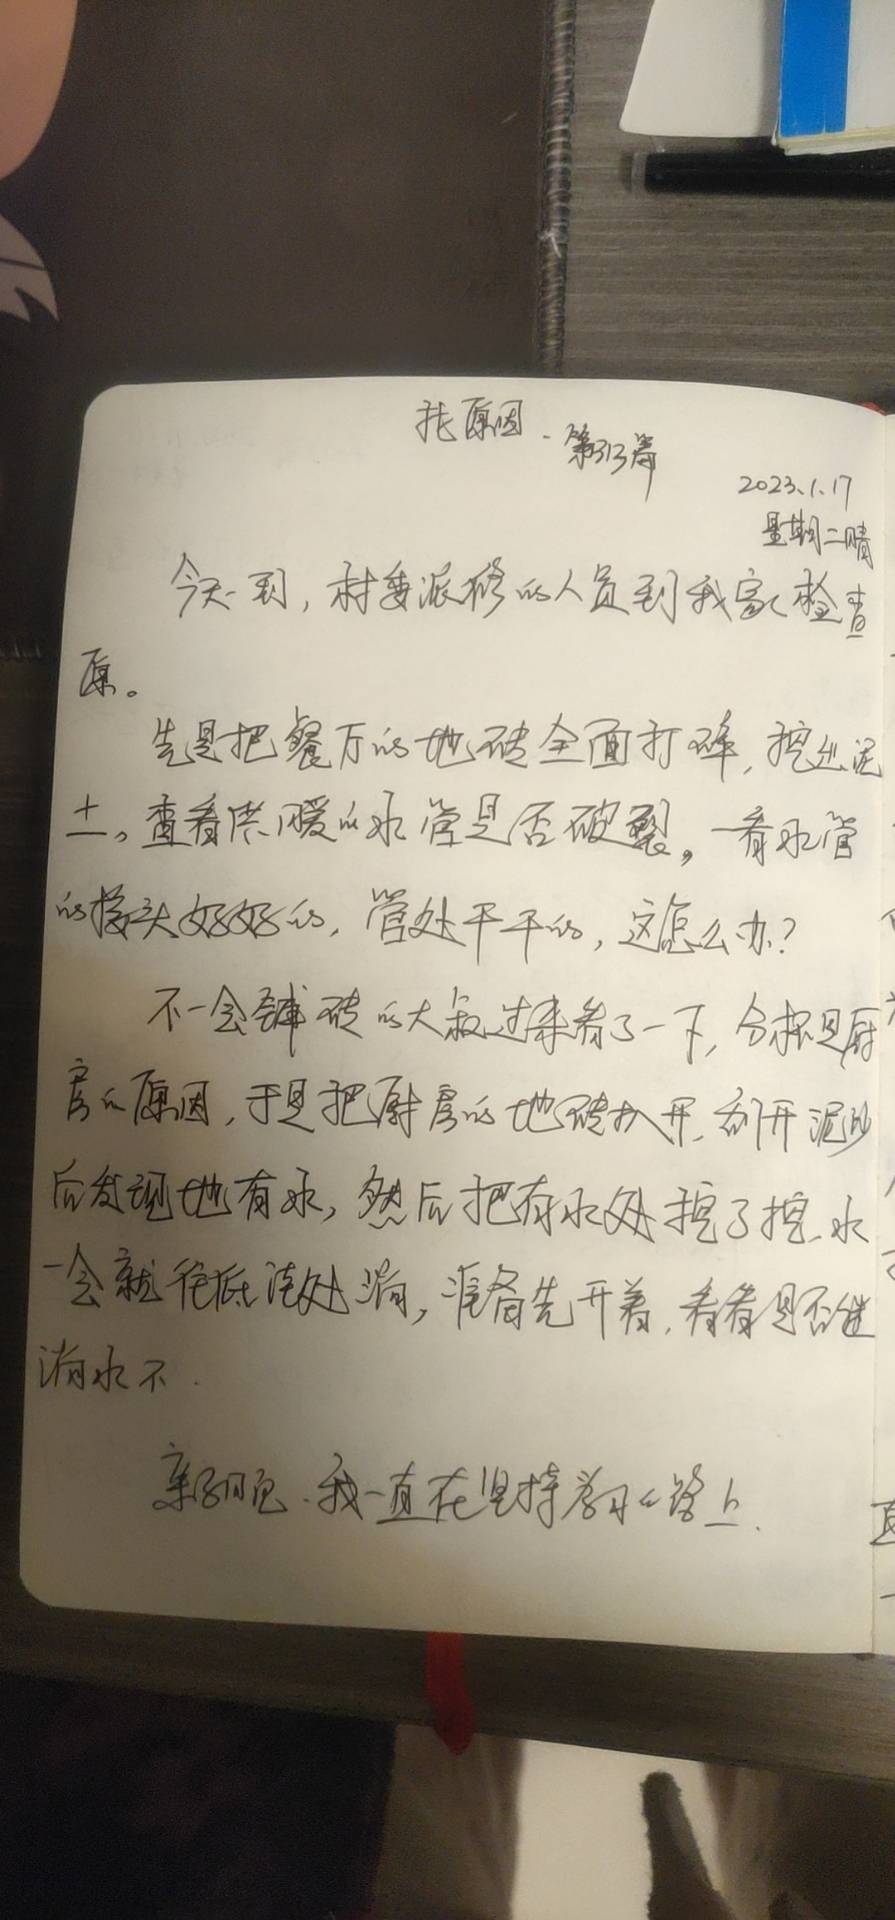 找原因.第313篇
2023.1.17
星期二晴
今天到,村委派修的人员到我家检查
原。
先是把餐厅的地砖全面打碎,挖出泥
土。查看供暖的水管是否破裂。一看水管
的接头好好的,管处干干的,这怎么办?
不一会铺砖的大叔过来看了一下,分析是厨
房的原因,于是把厨房的地砖扒开,刮开泥沙
后发现地有水,然后把有水处挖了挖.水
一会就往低洼处淌,准备先开着,看看是否继
淌水不.
亲子日记.我一直在坚持学习的路上.